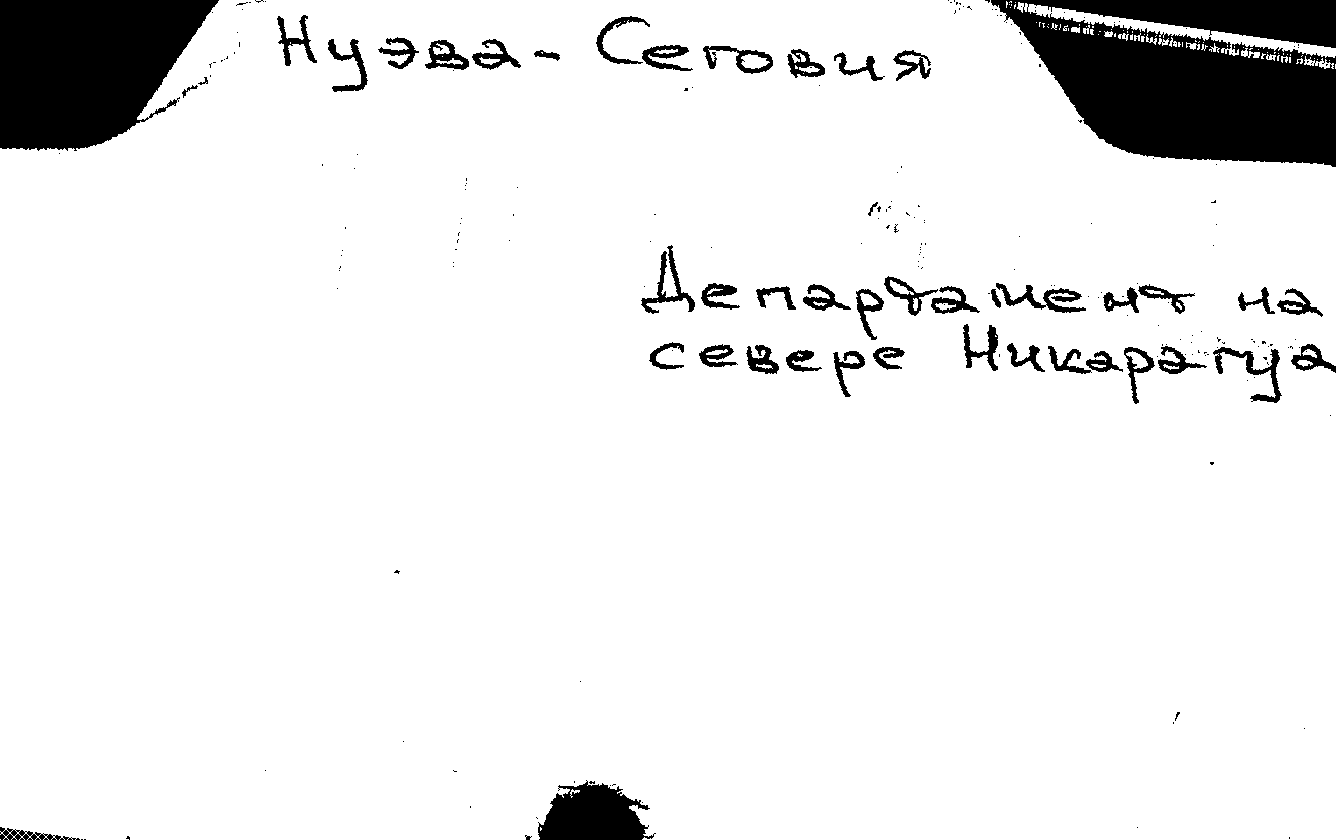 Нуэва-Сеговия
Департамент на
севере Никарагуа